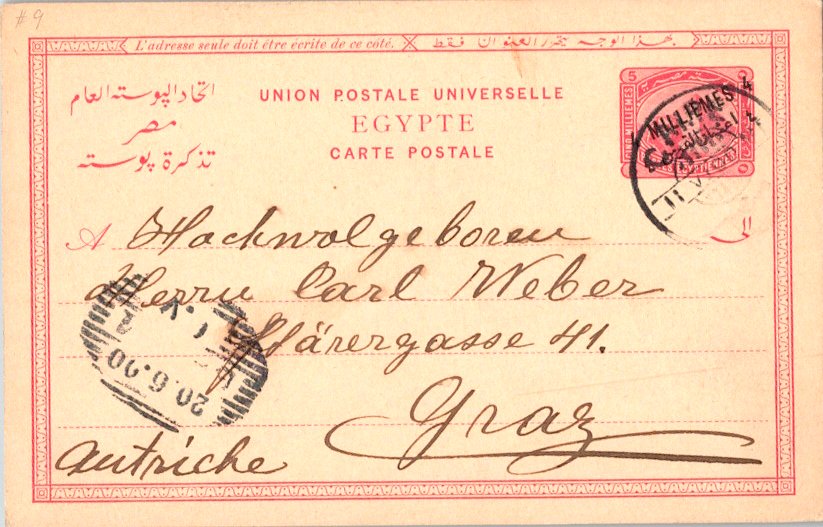 #9
L'adresse seule doit être écrite de ce côté.
بهذا الوجه يتحرر العنوان فقط
اتحاد البوسته العام
مصر
تذكرة بوسته
UNION POSTALE UNIVERSELLE
EGYPTE
CARTE POSTALE
5
MILLIEMES 4
A Hochwolgeboren
Herrn Carl Weber
Märergasse 41.
Graz
Autriche
20.6.00